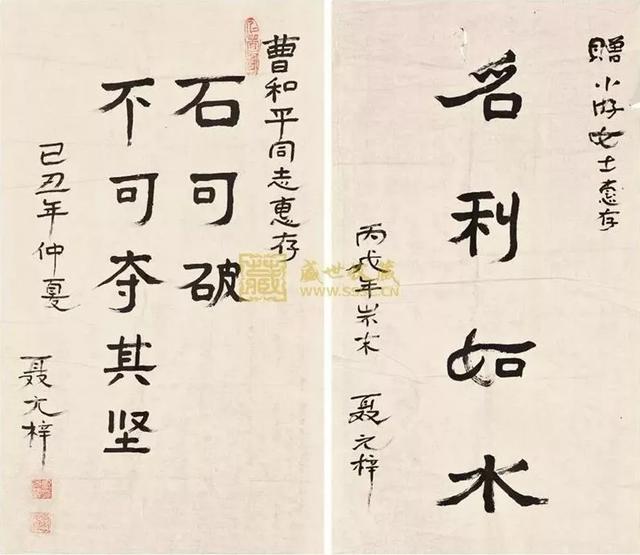 贈小女士惠存
名利如水
丙戌年岁末
聂元梓
曹和平同志惠存
石可破
不可夺其坚
己丑年仲夏
聂元梓
藏
盛世收藏
WWW.SSSC.CN